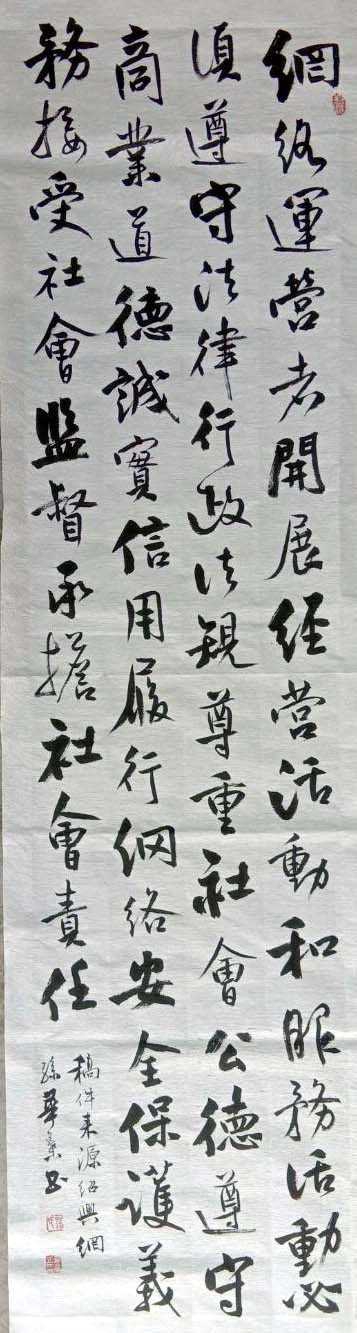 網络運营者開展经营活動和服務活動必
須遵守法律行政法規尊重社會公德遵守
商業道德誠實信用履行网络安全保護義
務接受社會監督承擔社會責任
稿件来源绍興網
孫華 书